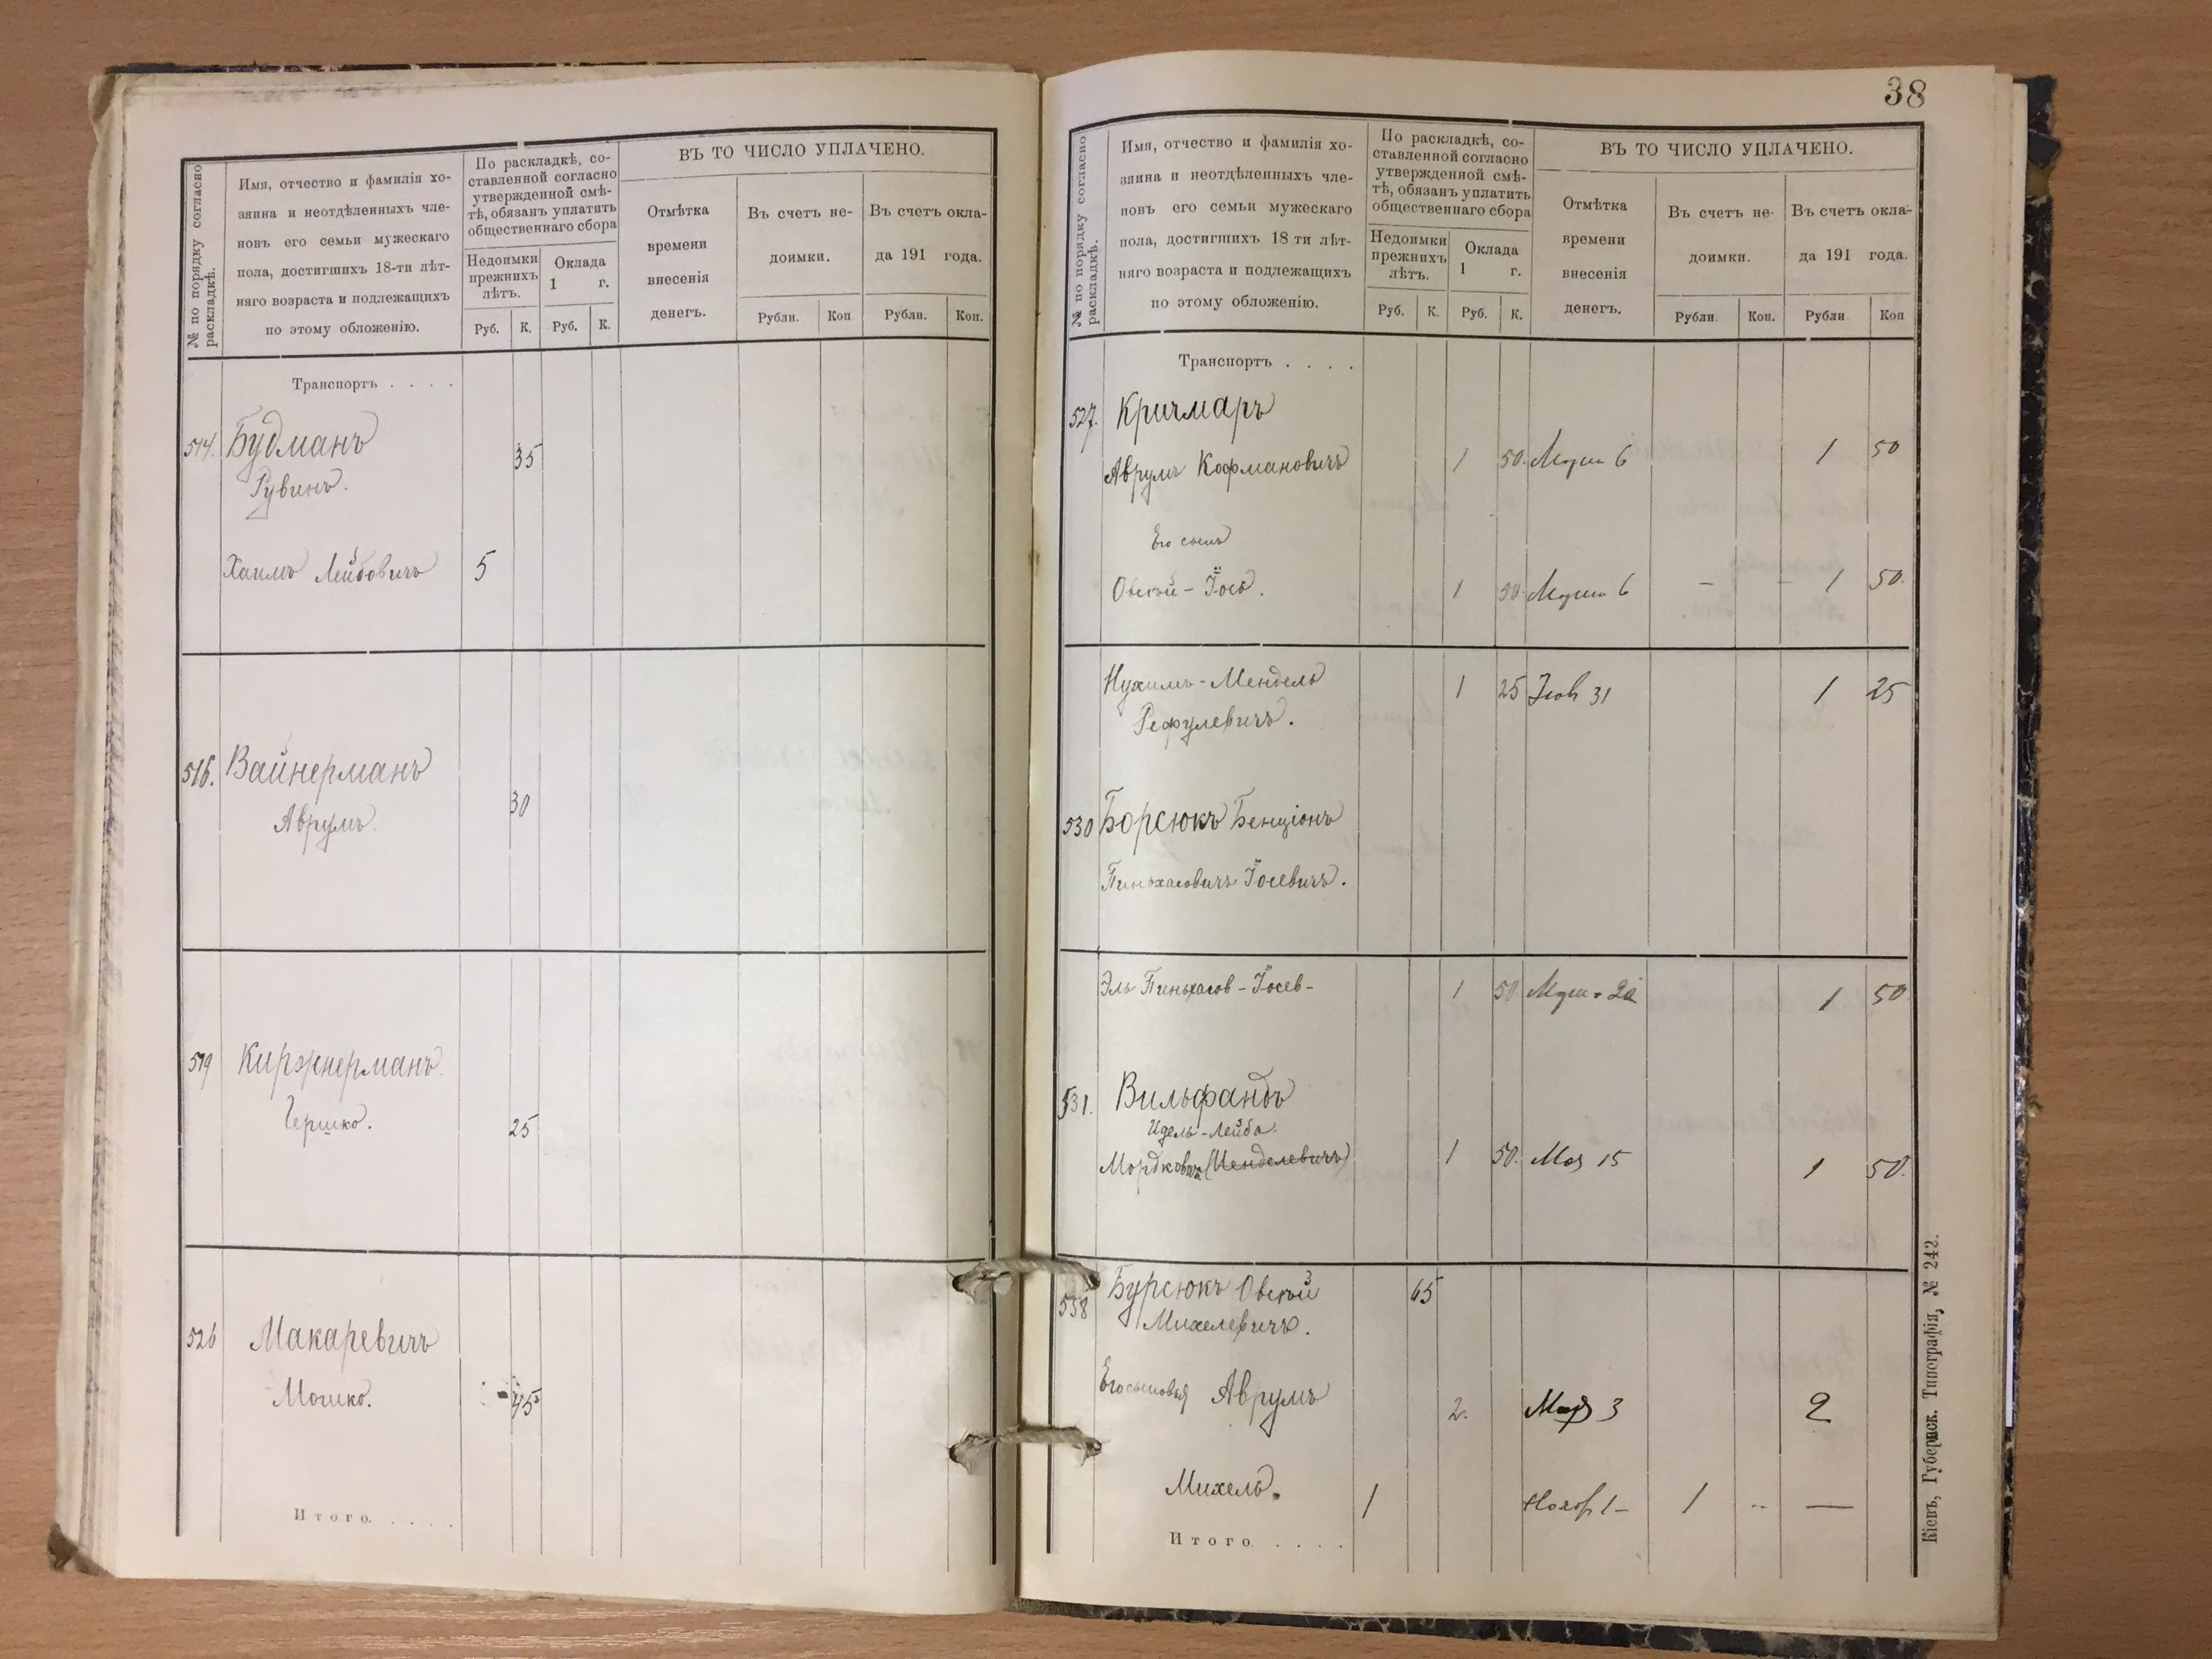 № по порядку согласно
раскладкѣ.
Имя, отчество и фамилія хо-
зяина и неотдѣленныхъ чле-
новъ его семьи мужескаго
пола, достигшихъ 18-ти лѣт-
няго возраста и подлежащихъ
по этому обложенію.
По раскладкѣ, со-
ставленной согласно
утвержденной смѣ-
тѣ, обязанъ уплатить
общественнаго сбора
Недоимки
прежнихъ
лѣтъ.
Оклада
1 г.
Руб. К. Руб. К.
ВЪ ТО ЧИСЛО УПЛАЧЕНО.
Отмѣтка
времени
внесенія
денегъ.
Въ счетъ не-
доимки.
Въ счетъ окла-
да 191 года.
Рубли. Коп Рубли. Коп.
Транспортъ . . . .
514. Будманъ
Рувинъ. 35
Хаимъ Лейбовичъ 5
516. Вайнерманъ
Аврумъ. 30
519 Киржнерманъ.
Гершко. 25
526 Макаревичъ
Мошко. 45
Итого. . . . .
38
№ по порядку согласно
раскладкѣ.
Имя, отчество и фамилія хо-
зяина и неотдѣленныхъ чле-
новъ его семьи мужескаго
пола, достигшихъ 18 ти лѣт-
няго возраста и подлежащихъ
по этому обложенію.
По раскладкѣ, со-
ставленной согласно
утвержденной смѣ-
тѣ, обязанъ уплатить
общественнаго сбора
Недоимки
прежнихъ
лѣтъ.
Оклада
1 г.
Руб. К. Руб. К.
ВЪ ТО ЧИСЛО УПЛАЧЕНО.
Отмѣтка
времени
внесенія
денегъ.
Въ счетъ не-
доимки.
Въ счетъ окла-
да 191 года.
Рубли. Коп. Рубли Коп
Транспортъ . . . .
527. Кричмаръ
Аврумъ Кофмановичъ 1 50. 6 1 50
Его сынъ
Овсей - Іось. 1 50 6 - - 1 50.
Нухимъ-Мендель 1 25 31 1 25
Рефулевичъ.
530 Борсюкъ Бенціонъ
Пинхасовичъ Іосевичъ.
Эль Пинхасов-Іосев- 1 50 1 50
531. Вильфандъ
Идель-Лейба
Мордковичъ (Менделевичъ) 1 50. Мая 15 1 50.
558 Бурсюкъ Овсей 65
Михелевичъ.
Его сыновья Аврумъ 2. 3 2
Михель. 1 Нояб 1 - 1 - —
Итого . . . .
Кіевъ, Губернск. Типографія, № 242.